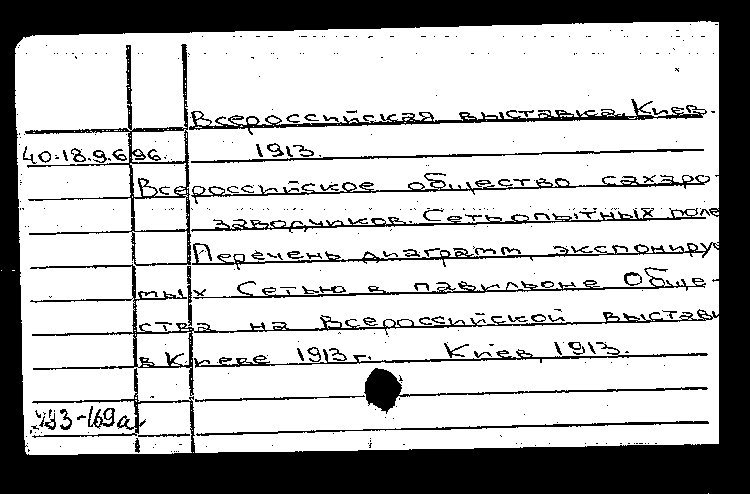 Всероссийская выставка, Киев.
40.18.9.6.96. 1913.
Всероссийское общество сахаро-
заводчиков. Сеть опытных поле
Перечень диаграмм, экспониру
мых Сетью в павильоне Обще-
ства на Всероссийской выстав
в Киеве 1913 г. Киев, 1913.
793-169а